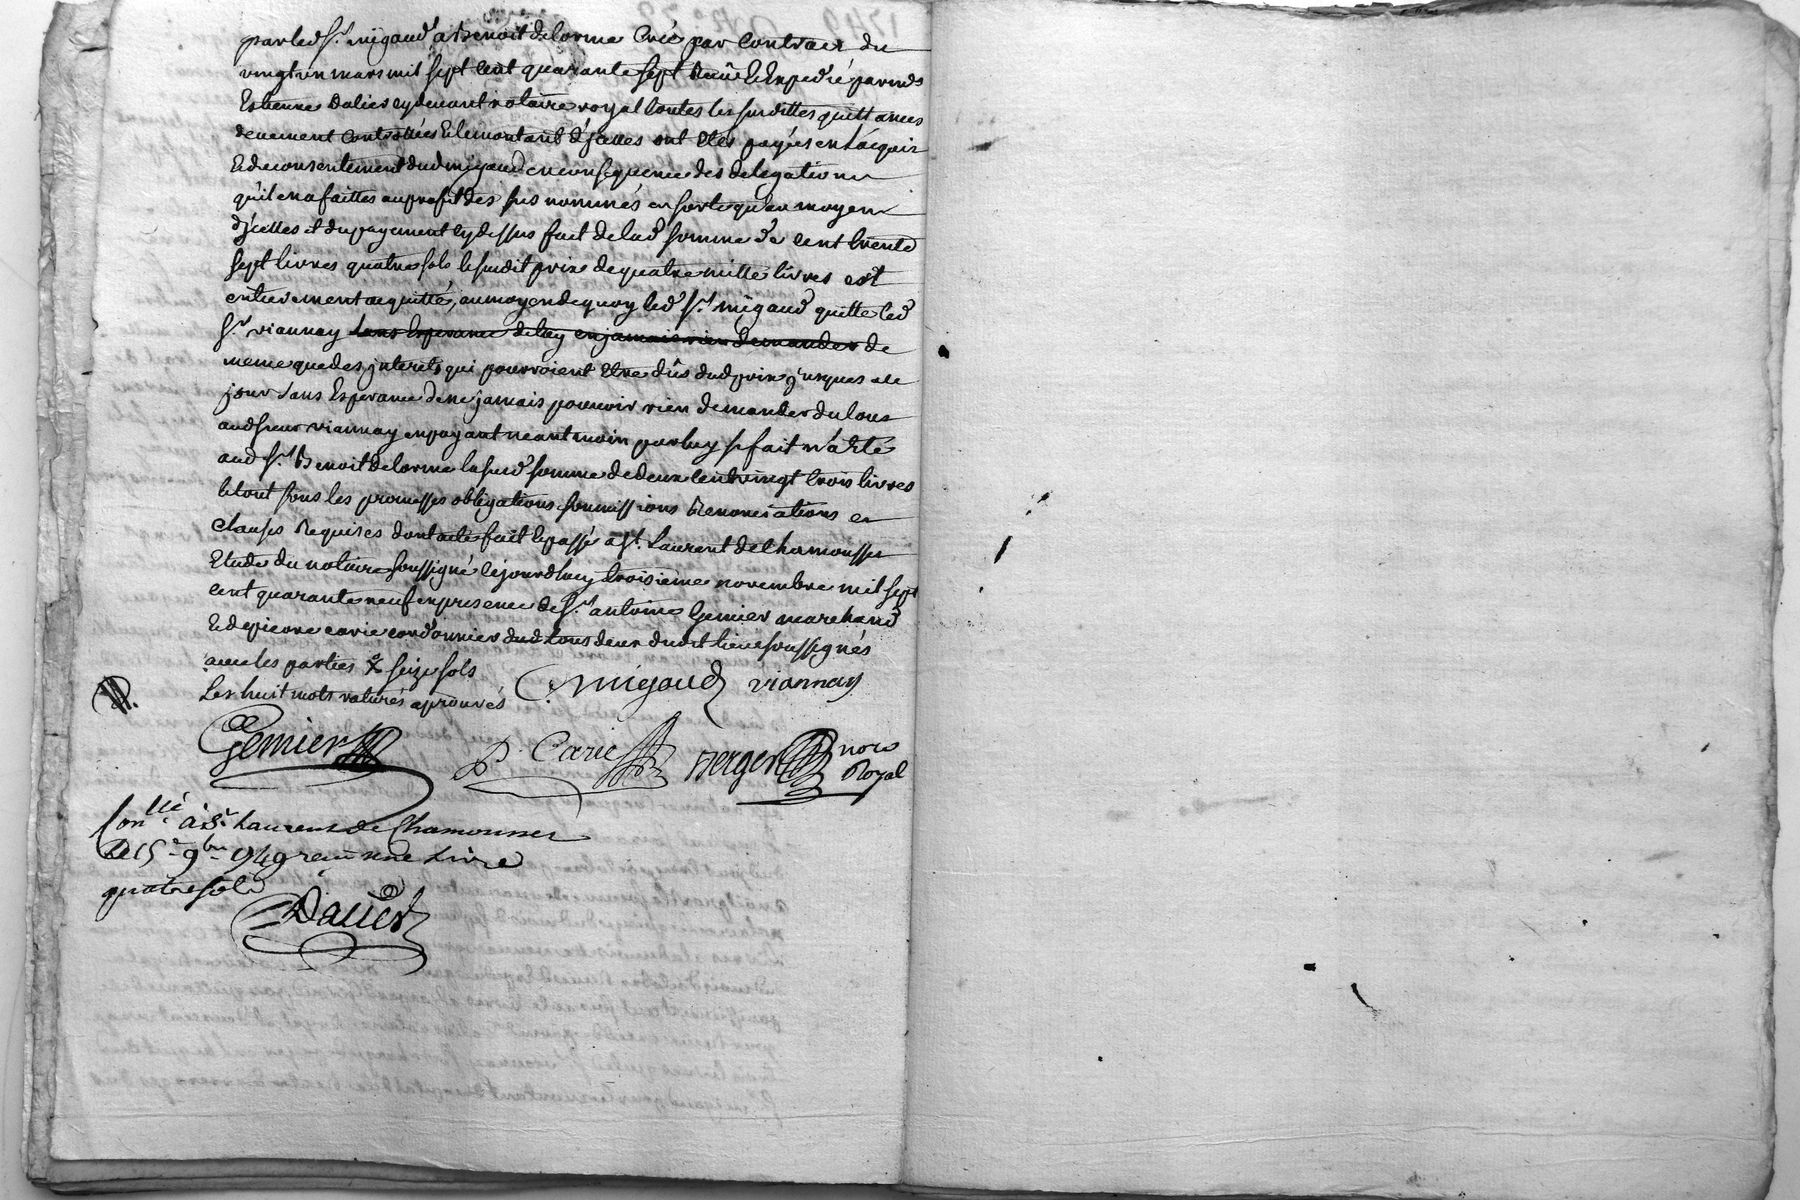 par led sr. migaud a Benoit delorme Créé par Contract du
vingt un mars mil sept Cent quarante sept Recûe Et Expedié par mes
Estienne Dalier cy devant notaire royal toutes les susdittes quittances
deuement Controllées Et le montant d'jcelles ont Etés payés en l'acquit
Et de consentement dud migaud en consequence des delegations
qu'il en a faittes au profit des sus nommés en sorte qu'au moyen
d'jcelles et du payement cy dessus fait de lad somme de cent trente
sept livres quatre sols le susdit prix de quatre mille livres est
entierement acquitté, au moyen de quoy led sr. migaud quitte led
sr. viannay sans Esperance de luy en jamais rien demander de
meme que des jnterets qui pourroient Etre dûs dud prix jusques a ce
jour sans Esperance de ne jamais pouvoir rien demander du tout
aud sieur viannay en payant neantmoin par luy si fait n'a Eté
aud sr. Benoit delorme la susd somme de deux cent vingt trois livres
le tout sous les promesses obligations soumissions Renonciations et
clauses Requises dont acte fait et passé a st. Laurent de Chamousset
Etude du notaire soussigné le jourd'huy troisieme novembre mil sept
cent quarante neuf en presence de sr. antoine Gemier marchand
Et de pierre carie cordonnier dud tous deux dudit lieu soussignés
avec les parties & seize sols
les huit mots raturés aprouvés
Migaud viannay
Gemier P. Carie Berger nore
Royal
Conllé à St. Laurens de Chamousset
Le 15e 9bre 1749 reçu une Livre
quatre sols
Dalier